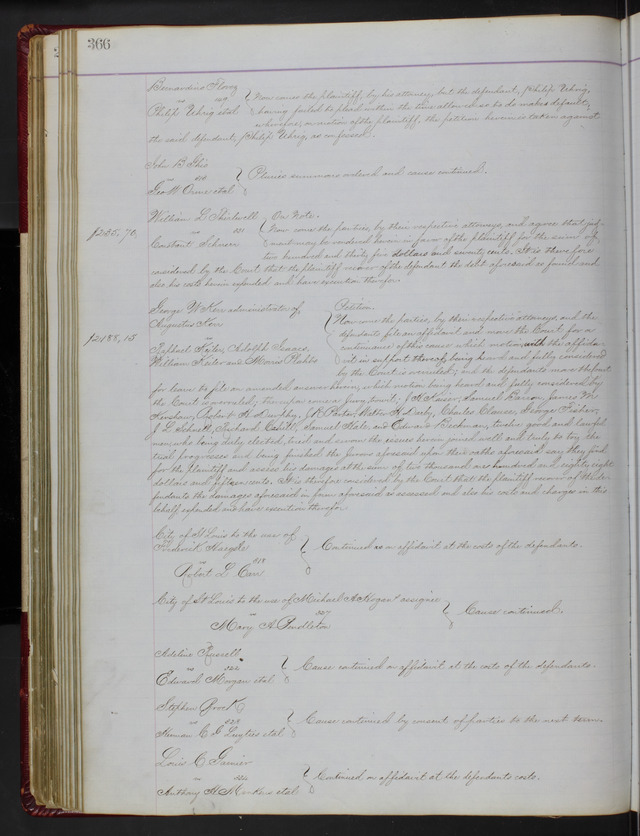 366
Bernardino Florez
vs
Philip Uhrig etal
Now comes the plaintiff, by his attorney, but the defendant, Philip Uhrig,
having failed to plead within the time allowed so to do makes default;
wherefore, on motion of the plaintiff, the petition herein is taken against
the said defendant, Philip Uhrig, as confessed.
John B Ghio
vs
Geo W Orme etal
Pluries summons ordered and cause continued.
$235,70,
William L Thirlwell
vs
Constant Schuser
On Note.
Now come the parties, by their respective attorneys, and agree that judg-
ment may be rendered herein in favor of the plaintiff for the sum of
two hundred and thirty five dollars and seventy cents. It is therefore
considered by the Court that the plaintiff recover of the defendant the debt aforesaid so found and
also his costs herein expended and have execution therefor.
$2188,15
George W Kerr administrator of
Augustus Kerr
vs
Raphael Keiler, Adolph Isaacs,
William Keiler and Morris
Petition
Now come the parties, by their respective attorneys, and the
defendants file an affidavit and move the Court for a
continuance of this cause which motion, with the affida-
vit in support thereof, being heard and fully considered
by the Court is overruled; and the defendants move the Court
for leave to file an amended answer herein; which motion being heard and fully considered by
the Court is overruled; thereupon come a Jury, towit; Samuel Barron, James M
Kershaw, Robert H J. R. Porter, Walter H Darby, Charles Clause, George Fisher,
J L Richard Cahill, Samuel Hale, and Edward Beckman, twelve good and lawful
men, who being duly elected, tried and sworn the issues herein joined well and truly to try the
trial progresses and being finished the Jurors aforesaid upon their oaths aforesaid say they find
for the plaintiff and assess his damages at the sum of two thousand one hundred and eighty eight
dollars and fifteen cents. It is therefore considered by the Court that the plaintiff recover of the de-
fendants the damages aforesaid in form aforesaid so assessed and also his costs and charges in this
behalf expended and have execution therefor.
City of St Louis to the use of
Frederick Haegele
vs 218
Robert L Carr
Continued on affidavit at the costs of the defendants.
City of St Louis to the use of Michael A Hogan assignee
vs 227
Mary A Pendleton
Cause continued.
Adeline Russell
vs 222
Edward Morgan etal
Cause continued on affidavit at the costs of the defendants.
Stephen Brock
vs 223
Herman C G Luyties etal
Cause continued by consent of parties to the next term.
Louis C Garnier
vs 224
Anthony H etal
Continued on affidavit at the defendants costs.